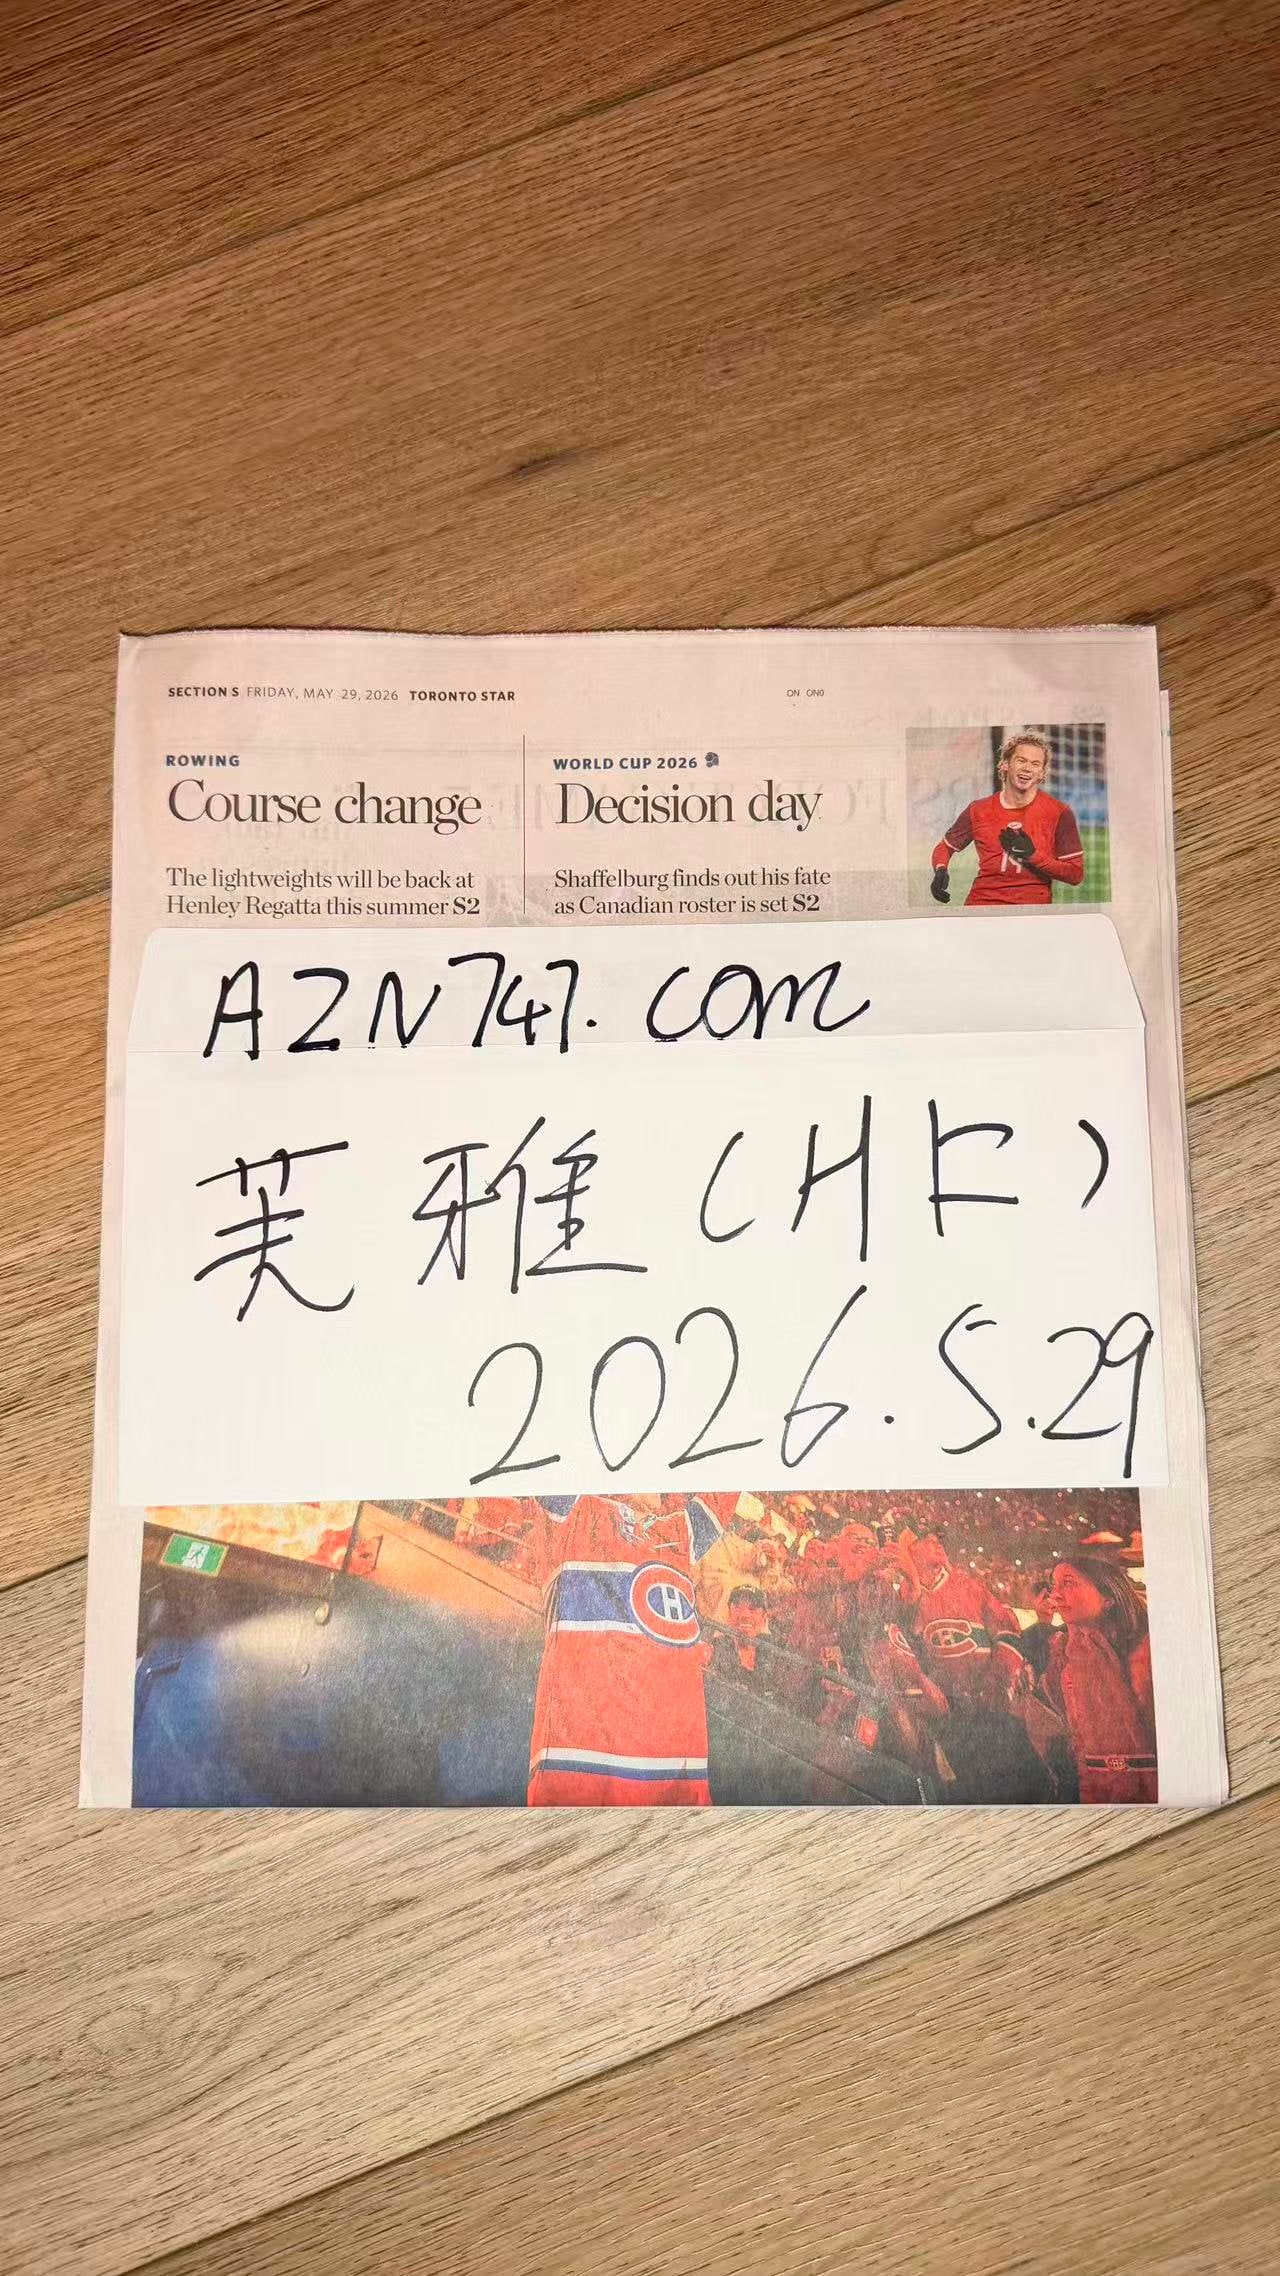 SECTION S FRIDAY, MAY 29, 2026 TORONTO STAR
ON ON0
ROWING
Course change
The lightweights will be back at
Henley Regatta this summer S2
WORLD CUP 2026
Decision day
Shaffelburg finds out his fate
as Canadian roster is set S2
AZN747.com
芙雅(HF)
2026.5.29